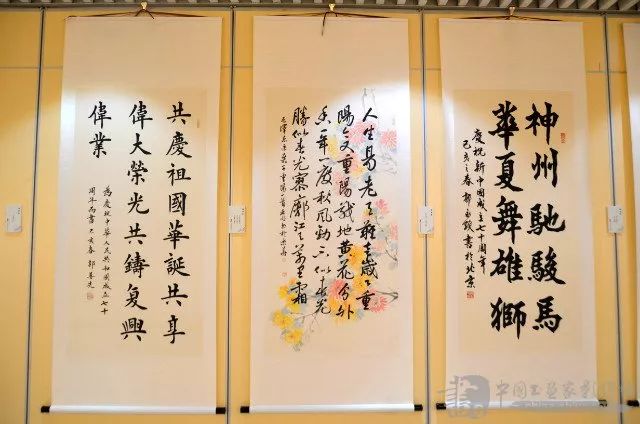 共慶祖國華誕共享
偉大榮光共鑄復興
偉業
為慶祝中華人民共和國成立七十
周年而書己亥春郭
人生易老天難老歲歲重
陽今又重陽戰地黃花分外
香一年一度秋風勁不似春光
勝似春光寥廓江天萬里霜
毛澤東采桑子重陽
神州馳駿馬
華夏舞雄獅
慶祝新中國成立七十周年
己亥之春郭書於北京